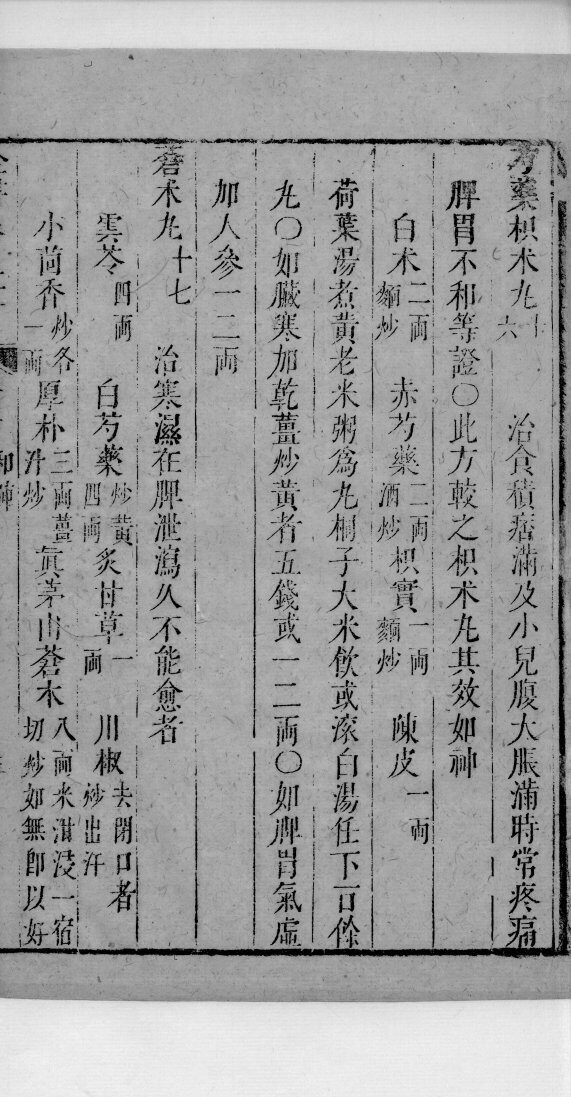 芍藥枳术丸十六 治食積痞滿及小兒腹大脹滿時常疼痛
脾胃不和等證○此方較之枳术丸其效如神
白术二兩麵炒 赤芍藥二兩酒炒 枳實一兩麵炒 陳皮一兩
荷葉湯煮黃老米粥爲丸桐子大米飲或滚白湯任下百餘
丸○如臟寒加乾薑炒黃者五錢或一二兩○如脾胃氣虛
加人參一二兩
蒼术丸十七 治寒濕在脾泄瀉久不能愈者
雲苓四兩 白芍藥炒黃四兩 炙甘草一兩 川椒去閉口者炒出汗
小茴香炒各一兩 厚朴三兩薑汁炒 真茅山蒼术八兩米泔浸一宿切炒如無卽以好